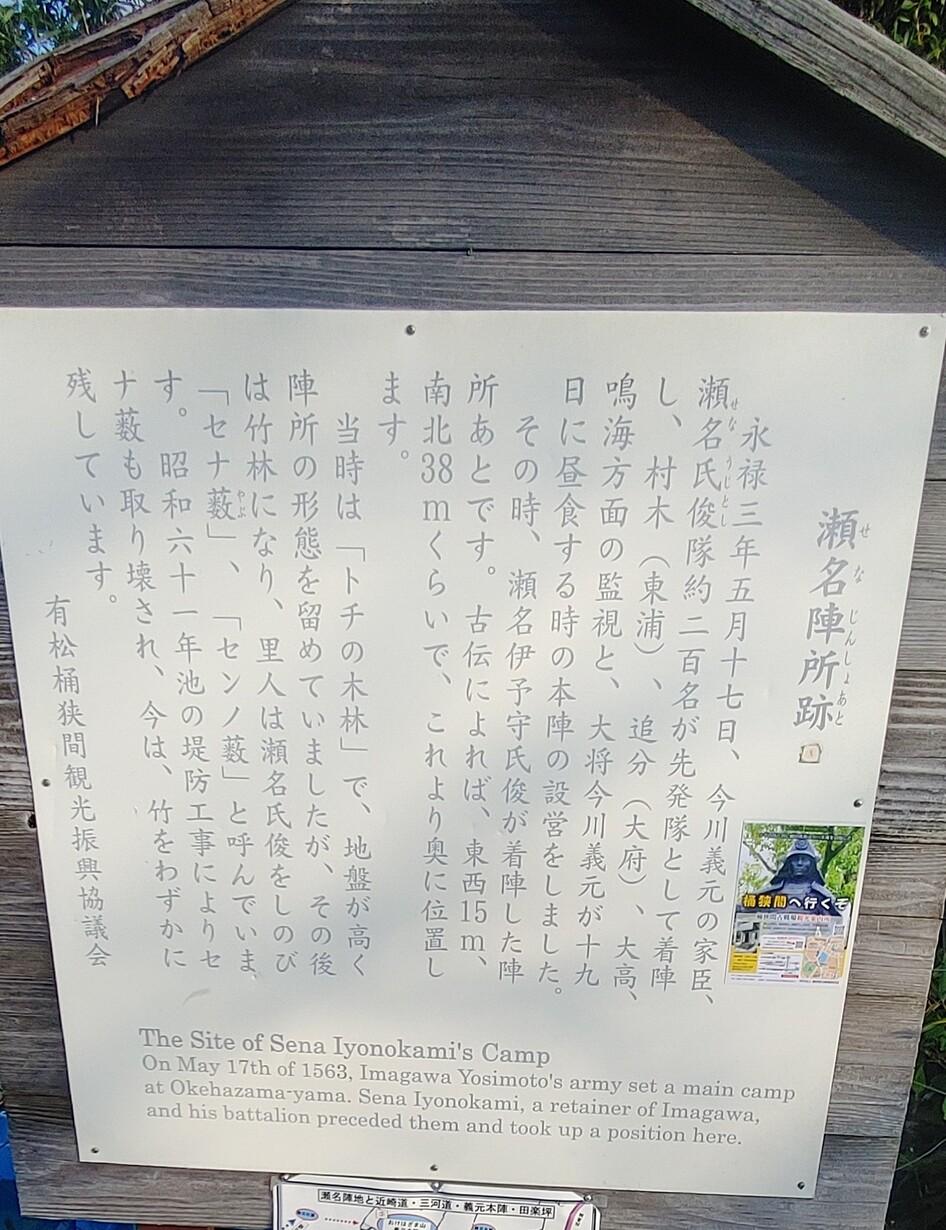 瀬名陣所跡
せ な じんしょあと
永禄三年五月十七日、今川義元の家臣、
瀬名氏俊隊約二百名が先発隊として着陣
せ な うじとし
し、村木（東浦）、追分（大府）、大高、
鳴海方面の監視と、大将今川義元が十九
日に昼食する時の本陣の設営をしました。
その時、瀬名伊予守氏俊が着陣した陣
所あとです。古伝によれば、東西15m、
南北38mくらいで、これより奥に位置し
ます。
当時は「トチの木林」で、地盤が高く
陣所の形態を留めていましたが、その後
は竹林になり、里人は瀬名氏俊をしのび
「セナ藪」、「センノ藪」と呼んでいま
やぶ
す。昭和六十一年池の堤防工事によりセ
ナ藪も取り壊され、今は、竹をわずかに
残しています。
有松桶狭間観光振興協議会
桶狭間へ行くぞ
The Site of Sena Iyonokami's Camp
On May 17th of 1563, Imagawa Yosimoto's army set a main camp
at Okehazama-yama. Sena Iyonokami, a retainer of Imagawa,
and his battalion preceded them and took up a position here.
瀬名陣地と近崎道・三河道・義元本陣・田楽坪
おけはざま山